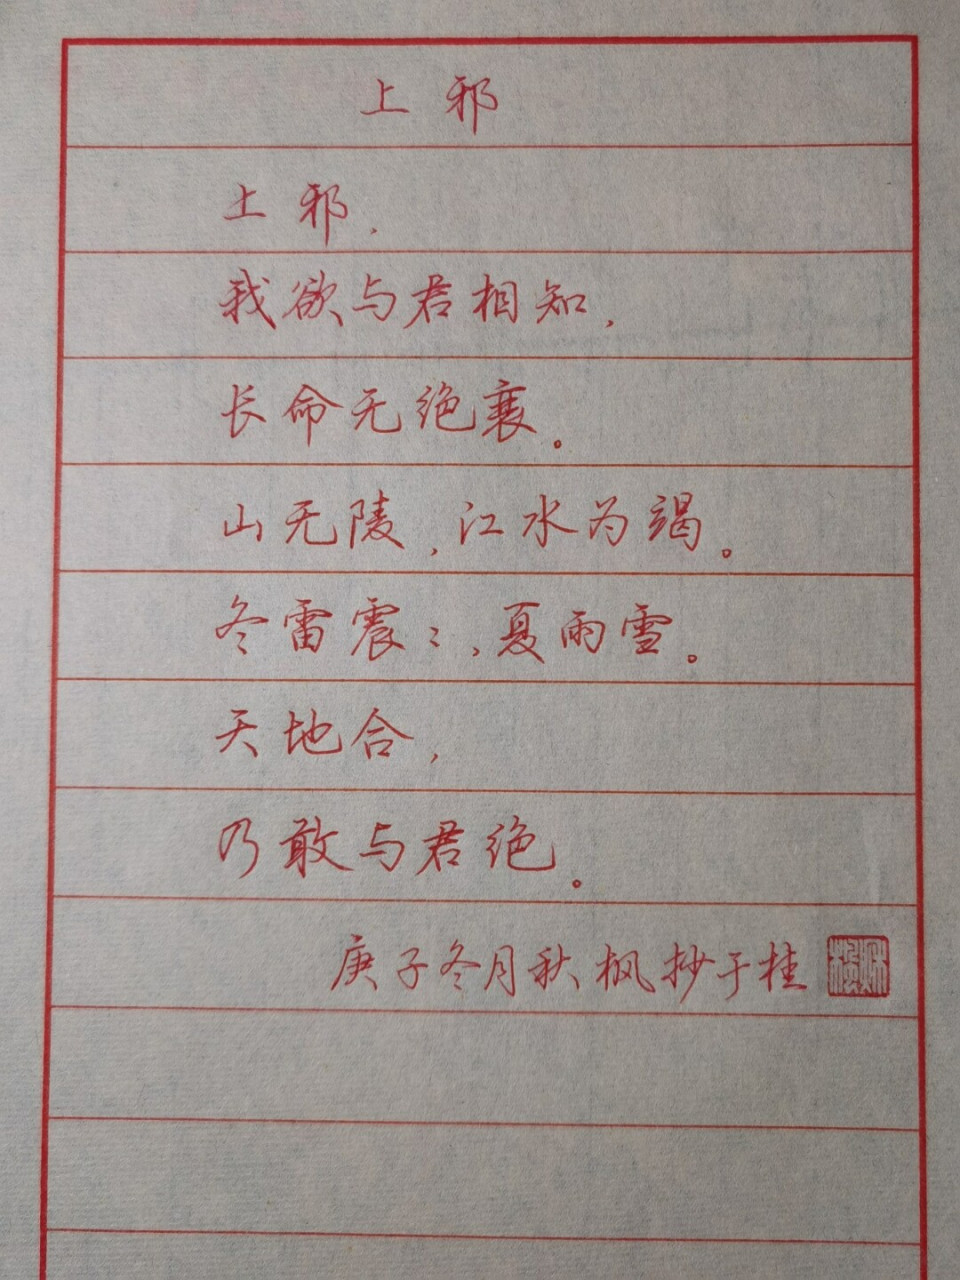 上邪
上邪，
我欲与君相知，
长命无绝衰。
山无陵，江水为竭。
冬雷震〻，夏雨雪。
天地合，
乃敢与君绝。
庚子冬月秋枫抄于桂